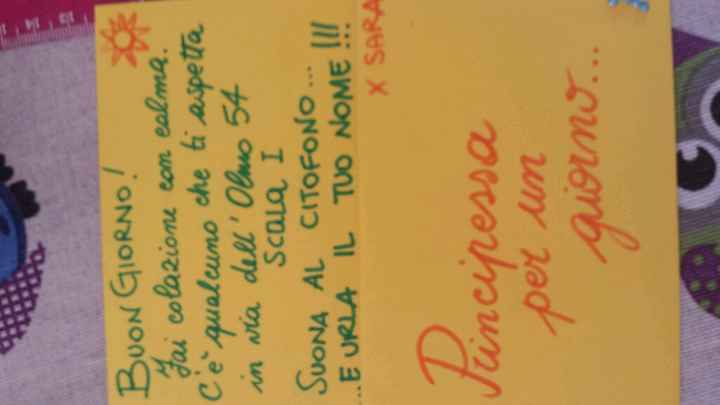 BUON GIORNO!
Fai colazione con calma.
C'è qualcuno che ti aspetta
in via dell'Olmo 54
scala I
SUONA AL CITOFONO... !!!
...E URLA IL TUO NOME!!!
X SARA
Principessa
per un
giorno...